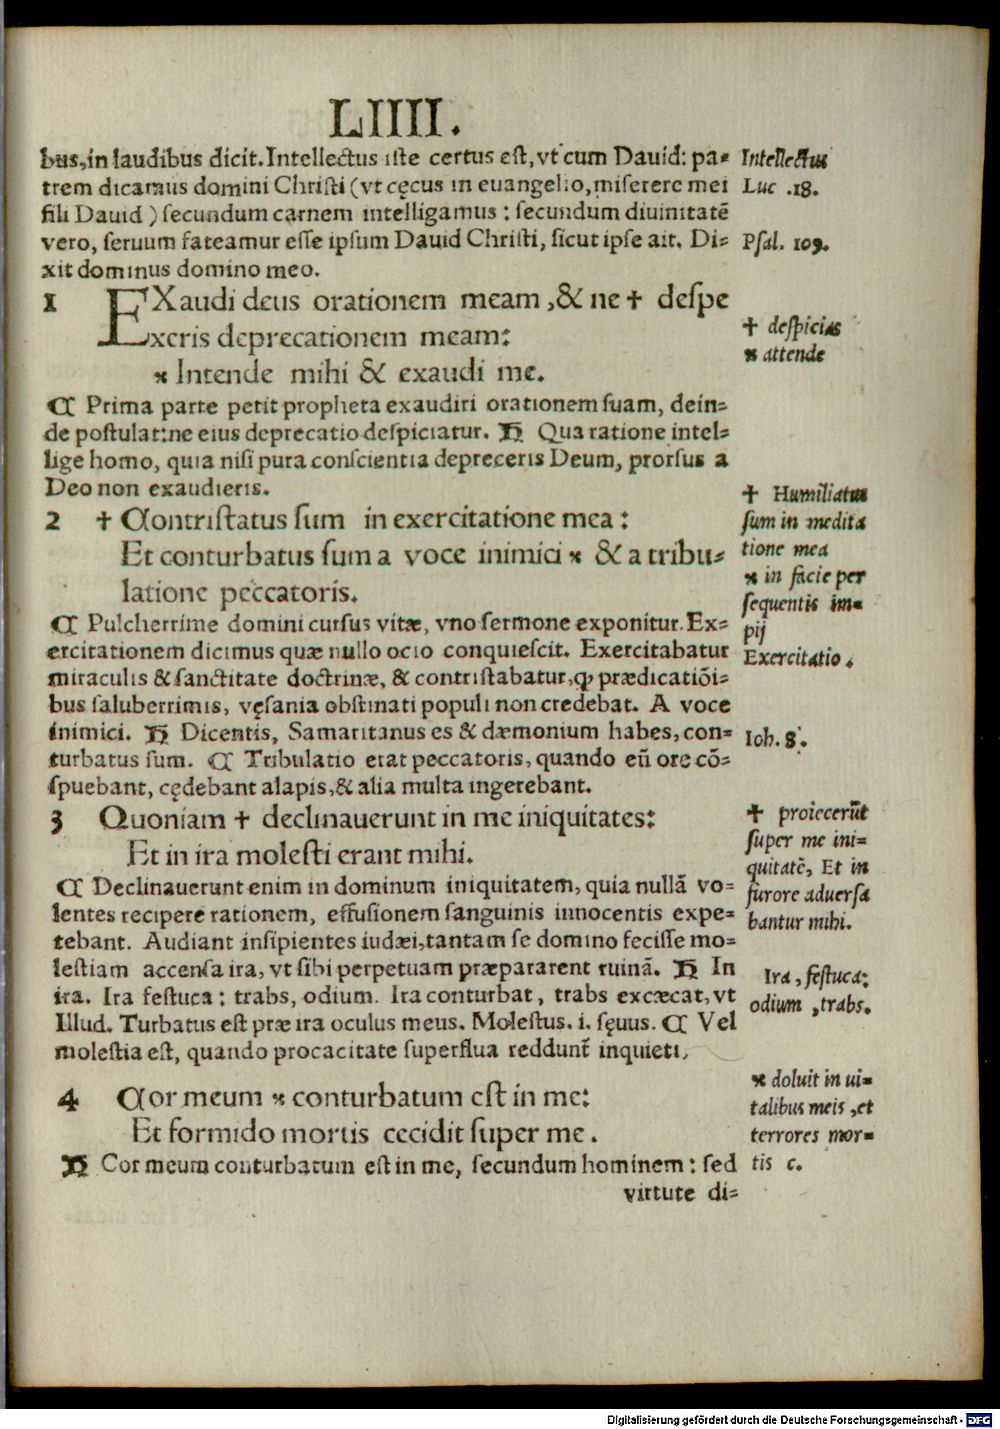 LIIII.
bus, in laudibus dicit. Intellectus iste certus est, vt cum Dauid: pa-
trem dicamus domini Christi (vt cęcus in euangelio, miserere mei
fili Dauid) secundum carnem intelligamus: secundum diuinitatē
vero, seruum fateamur esse ipsum Dauid Christi, sicut ipse ait. Di-
xit dominus domino meo.
Intellectus
Luc .18.
Psal. 109.
1 EXaudi deus orationem meam, & ne ✝ despe
xeris deprecationem meam:
⁕ Intende mihi & exaudi me.
✝ despicias
⁕ attende
C Prima parte petit propheta exaudiri orationem suam, dein-
de postulat: ne eius deprecatio despiciatur. H Qua ratione intel-
lige homo, quia nisi pura conscientia depreceris Deum, prorsus a
Deo non exaudieris.
2 ✝ Contristatus sum in exercitatione mea:
Et conturbatus sum a voce inimici ⁕ & a tribu-
latione peccatoris.
✝ Humiliatus
sum in medita
tione mea
⁕ in facie per
sequentis im-
pij
C Pulcherrime domini cursus vitæ, vno sermone exponitur. Ex-
ercitationem dicimus quæ nullo ocio conquiescit. Exercitabatur
miraculis & sanctitate doctrinæ, & contristabatur, ꝙ prædicatiōi-
bus saluberrimis, vęsania obstinati populi non credebat. A voce
inimici. H Dicentis, Samaritanus es & dæmonium habes, con-
turbatus sum. C Tribulatio erat peccatoris, quando eū ore cō-
spuebant, cędebant alapis, & alia multa ingerebant.
Exercitatio.
Ioh. 8.
3 Quoniam ✝ declinauerunt in me iniquitates:
Et in ira molesti erant mihi.
✝ proiecerūt
super me ini-
quitatē, Et in
furore aduersa
bantur mihi.
C Declinauerunt enim in dominum iniquitatem, quia nullā vo-
lentes recipere rationem, effusionem sanguinis innocentis expe-
tebant. Audiant insipientes iudæi, tantam se domino fecisse mo-
lestiam accensa ira, vt sibi perpetuam præpararent ruinā. H In
ira. Ira festuca: trabs, odium. Ira conturbat, trabs excæcat, vt
Illud. Turbatus est præ ira oculus meus. Molestus. i. sęuus. C Vel
molestia est, quando procacitate superflua reddunt̄ inquieti.
Ira, festuca:
odium, trabs.
4 Cor meum ⁕ conturbatum est in me:
Et formido mortis cecidit super me.
⁕ doluit in ui-
talibus meis, et
terrores mor-
tis c.
H Cor meum conturbatum est in me, secundum hominem: sed
virtute di-
Digitalisierung gefördert durch die Deutsche Forschungsgemeinschaft - DFG